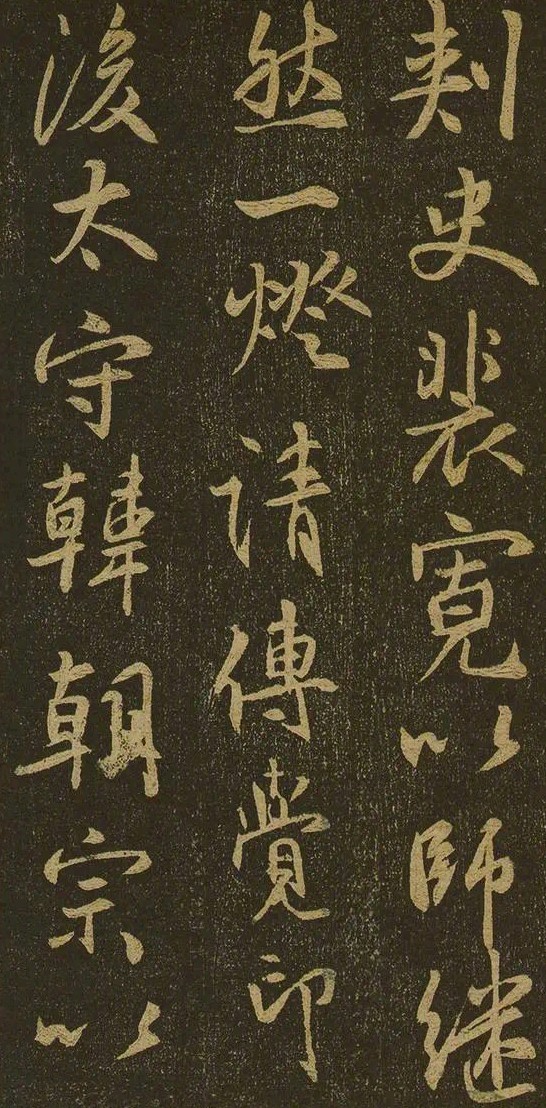 刺史裴寛以師继
然一燈請傳覺印
後太守韓朝宗以